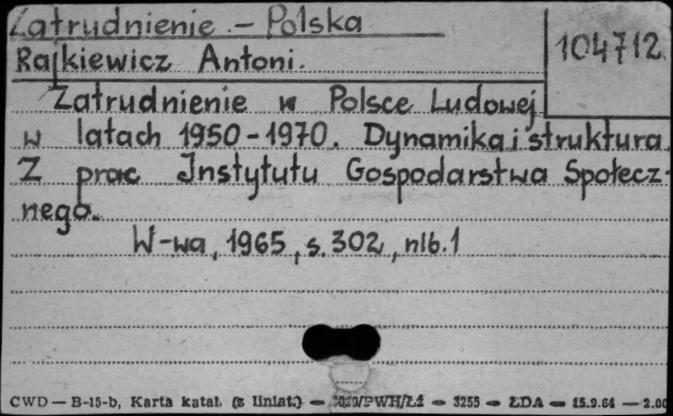 Zatrudnienie - Polska
104712
Rajkiewicz Antoni.
Zatrudnienie w Polsce Ludowej
w latach 1950-1970. Dynamika i struktura.
Z prac Instytutu Gospodarstwa Społecz-
nego.
W-wa, 1965, s. 302, nlb. 1
CWD — B-15-b, Karta katal. (z liniat.) — /PWH/Łź — 3255 — ŁDA — 15.9.64 — 2.00